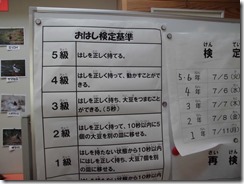 おはし検定基準
5級 はしを正しく持てる。
4級 はしを正しく持って、動かすことができる。
3級 はしを正しく持ち、大豆をつまむことができる。(5秒)
2級 はしを正しく持って、10秒以内に5個の大豆を別の皿に移せる。
1級 はしを持たない状態から10秒以内にはしを正しく持ち、大豆7個を別の皿に移せる。
はしを持たない状態から10秒以内
けん てい
検 定
5・6年 7/5(火)
4年 7/6(水
3年 7/7(
2年 7/8(
1年 7/11(
さい けん
再 検